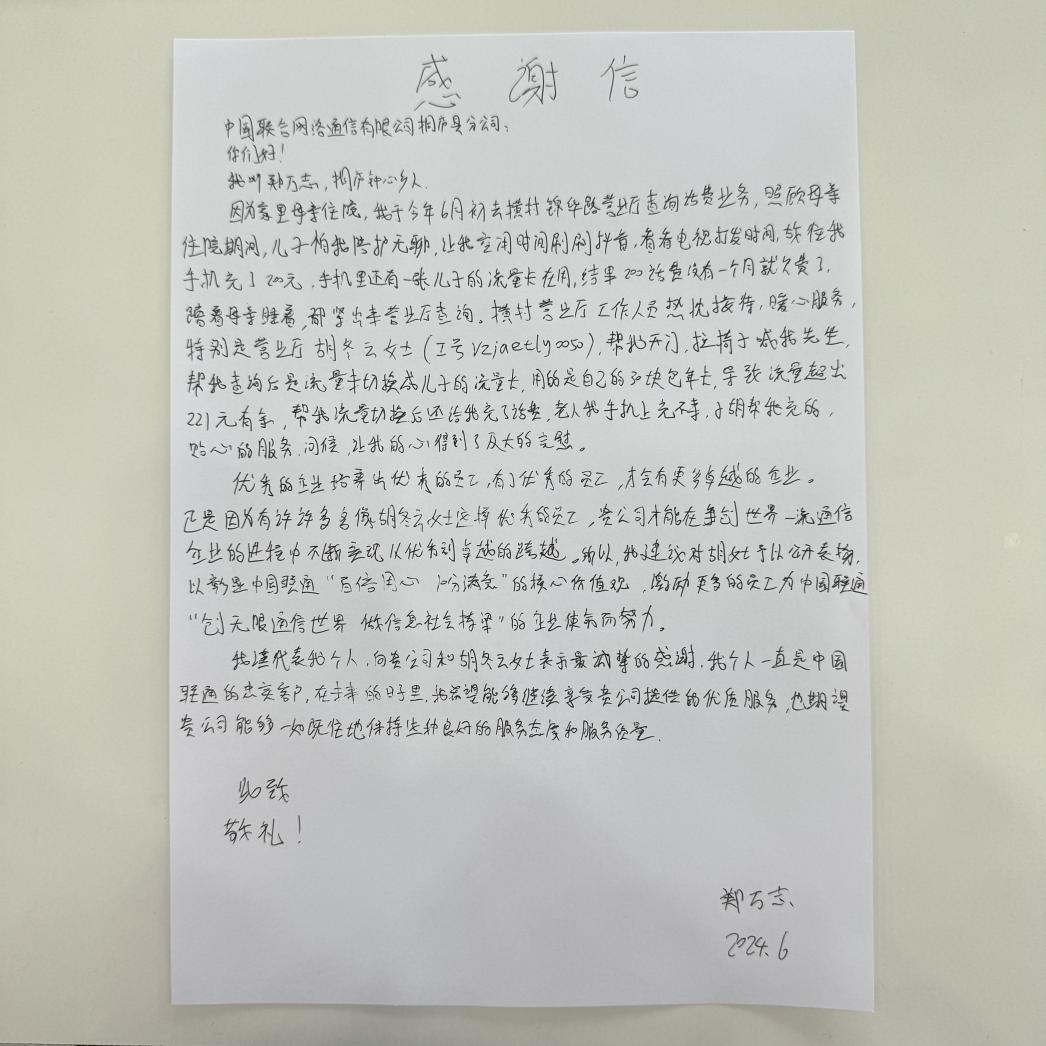 感谢信
中国联合网络通信有限公司桐庐县分公司：
你们好！
我叫郑万志，桐庐钟山乡人.
因为家里母亲住院，我于今年6月初去横村锦华路营业厅查询话费业务，照顾母亲
住院期间，儿子怕我陪护无聊，让我空闲时间刷刷抖音，看看电视打发时间，就往我
手机充了200元，手机里还有一张儿子的流量卡在用，结果200话费没有一个月就欠费了，
随着母亲睡着，都坚出来营业厅查询。横村营业厅工作人员热忱接待，暖心服务，
特别是营业厅胡冬云女士（工号vzjaetly0050），帮我开门，拉椅子喊我先生，
帮我查询后是流量未切换成儿子的流量卡，用的是自己的30块包年卡，导致流量超出
221元有余，帮我流量切换后还给我充了话费，老人我手机上充不来，小胡帮我充的，
贴心的服务、问候，让我的心得到了及大的宽慰。
优秀的企业培养出优秀的员工，有了优秀的员工，才会有更多卓越的企业。
正是因为有许许多多像胡冬云女士这样优秀的员工，贵公司才能在争创世界一流通信
企业的进程中不断实现从优秀到卓越的跨越。所以，我建议对胡女士予以公开表扬，
以彰显中国联通“百倍用心 10分满意”的核心价值观，激励更多的员工为中国联通
“创无限通信世界 做信息社会栋梁”的企业使命而努力。
我谨代表我个人，向贵公司和胡冬云女士表示最诚挚的感谢，我个人一直是中国
联通的忠实客户，在未来的日子里，我希望能够继续享受贵公司提供的优质服务，也期望
贵公司能够一如既往地保持这种良好的服务态度和服务质量.
此致
敬礼！
郑万志
2024.6